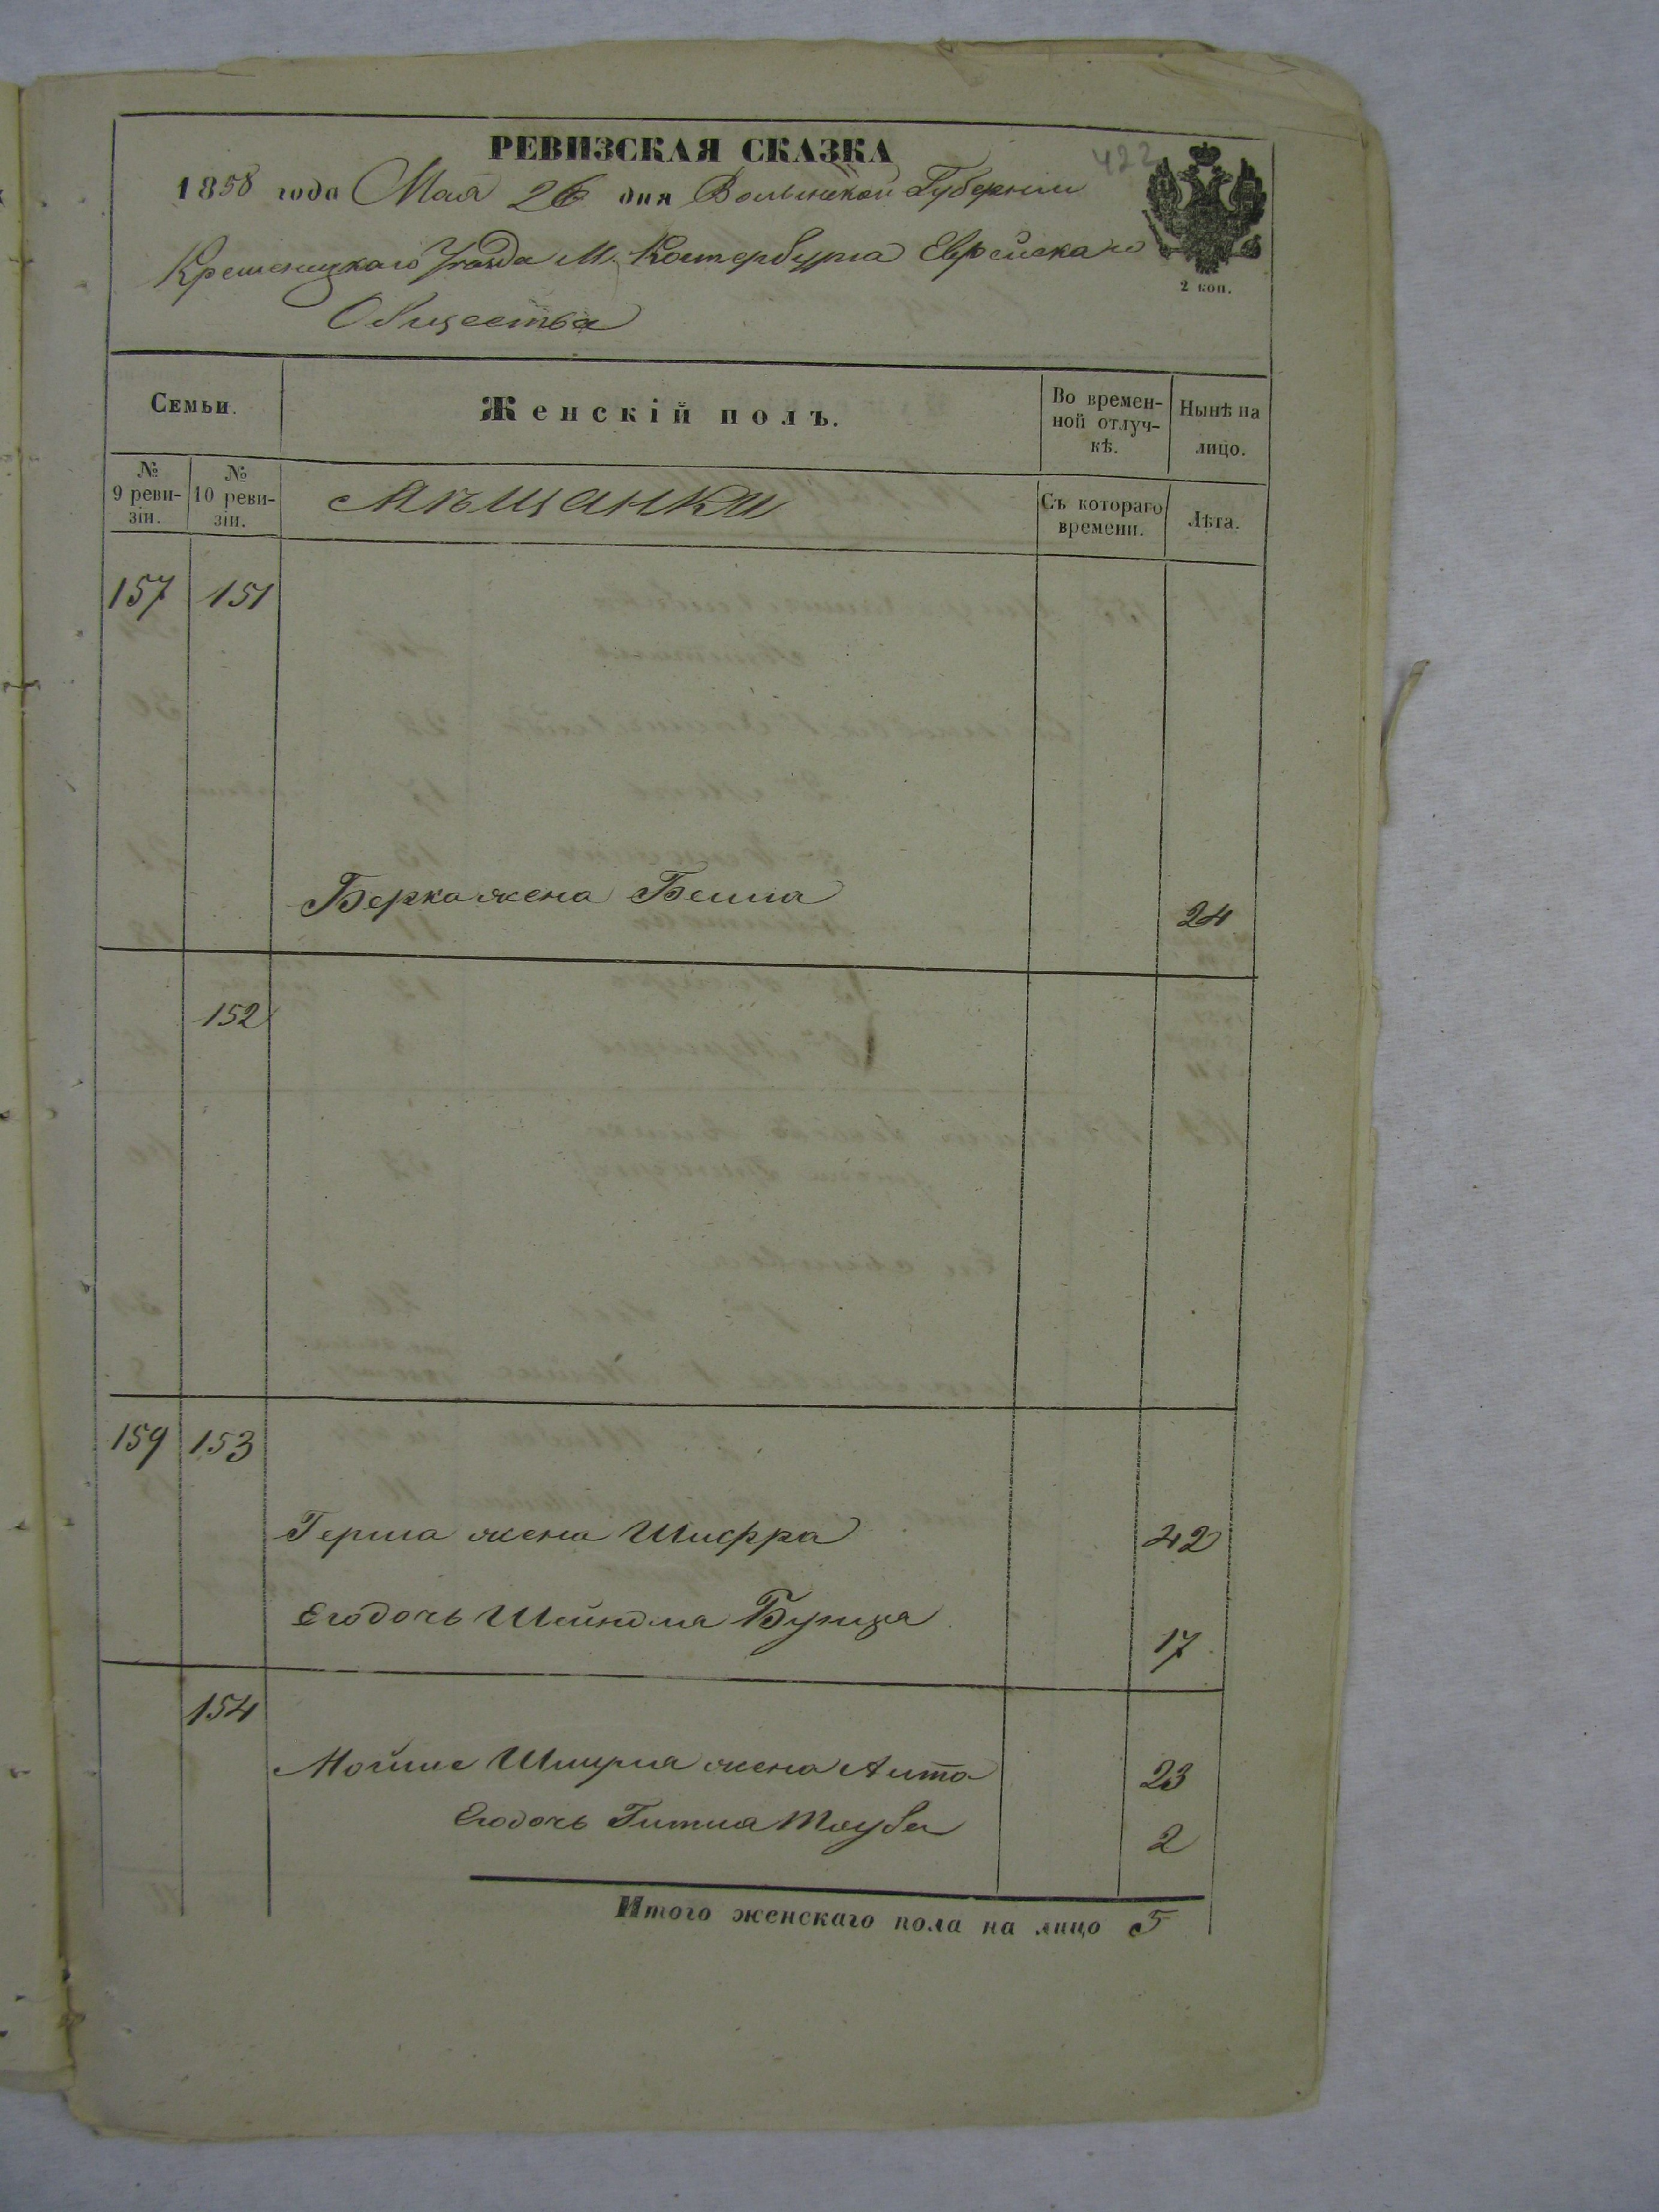 РЕВИЗСКАЯ СКАЗКА
422
1858 года Мая 26 дня Волынской Губерніи
Кременецкаго Уѣзда М. Котербурга Еврейскаго
2 коп.
Общества
Семьи.
Женскій полъ.
Во времен-
ной отлуч-
кѣ.
Нынѣ на
лицо.
№
9 реви-
зіи.
№
10 реви-
зіи.
Мѣщанки
Съ котораго
времени.
Лѣта.
157 151
Берка жена Бейла 24
152
159 153
Герша жена Шифра 42
Его дочь Шейндля Бунца 17
154
Мойше Шмуля жена Аита 23
Его дочь Гитля Тауба 2
Итого женскаго пола на лицо 5